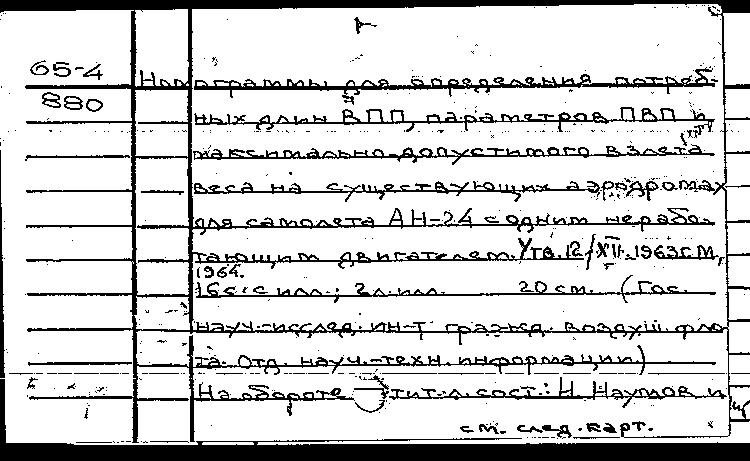 65-4
880
Номограммы для определения потреб-
ных длин ВПП, параметров ПВП и
максимально-допустимого взлета
веса на существующих аэродромах
для самолета АН-24 с одним нерабо-
тающим двигателем. Утв. 12/XII.1963г. М.,
1964.
16 с. с илл.; 2 л. илл. 20 см. (Гос.
науч.-исслед. ин-т гражд. воздуш. фло-
та. Отд. науч.-техн. информации)
На обороте тит. л. сост.: Н. Наумов и
см. след. карт.